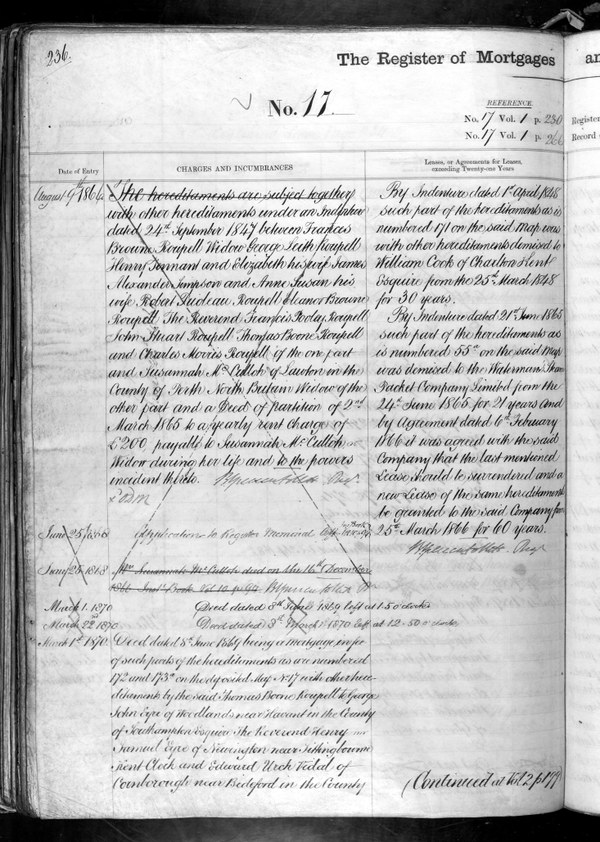 236.
The Register of Mortgages
an
No. 17
REFERENCE.
No. 17 Vol. 1 p. 230
No. 17 Vol. 1 p. 266
Register
Record
Date of Entry
CHARGES AND INCUMBRANCES
Leases, or Agreements for Leases,
exceeding Twenty-one Years
August 9th 1864
The hereditaments are subject together
with other hereditaments under an Indenture
dated 24th September 1847 between Frances
Browne Roupell Widow George Leith Roupell
Henry Tennant and Elizabeth his wife James
Alexander Simpson and Anne Susan his
wife Robert Roupell Eleanor Browne
Roupell The Reverend Francis Pooly Roupell
John Stuart Roupell Thomas Boone Roupell
and Charles Morris Roupell of the one part
and Susannah Mc Culloh of Lawton in the
County of Perth North Britain Widow of the
other part and a Deed of partition of 2nd
March 1865 to a yearly rent Charge of
£200 payable to Susannah Mc Culloh
Widow during her life and to the powers
incident thereto.
June 25 1868
Application to Register Memorial
June 25 1868
Mrs Susannah Mc Culloh died on the 16th December
1866
March 1. 1870
Deed dated 8th June 1869 left at 1.50 o'clock
March 22nd 1870
Deed dated 3rd March 1870 left at 12.50 o'clock
March 1st 1870.
Deed dated 8th June 1869 being a mortgage in fee
of such parts of the hereditaments as are numbered
172 and 173a on the deposited Map No 17 with other here-
ditaments by the said Thomas Boone Roupell to George
John Eyre of Woodlands near Havant in the County
of Southampton Esquire The Reverend Henry
Samuel Eyre of Newington near Sittingbourne
Kent Clerk and Edward Urch Vidal of
Cornborough near Bideford in the County
By Indenture dated 1st April 1848
such part of the hereditaments as is
numbered 171 on the said map was
with other hereditaments demised to
William Cook of Charlton Kent
Esquire from the 25th March 1848
for 30 years.
By Indenture dated 21st June 1865
such part of the hereditaments as
is numbered 55a on the said Map
was demised to the Watermans Steam
Packet Company Limited from the
24th June 1865 for 21 years and
by Agreement dated 6th February
1866 it was agreed with the said
Company that the last mentioned
Lease should be surrendered and a
new Lease of the same hereditaments
be granted to the said Company from
25th March 1866 for 60 years.
(Continued at Vol 2 p 199